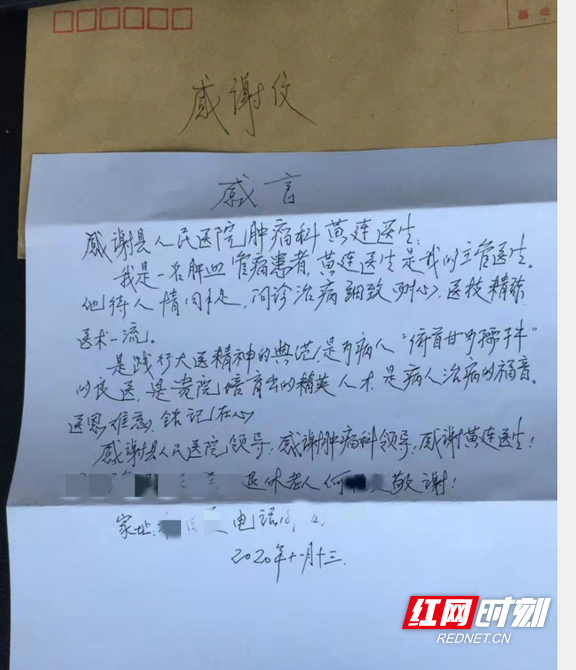 感谢信
感言
感谢县人民医院肿瘤科黄连医生:
我是一名肝血管病患者,黄连医生是我的主管医生。
他待人情同手足,问诊治病细致耐心,医技精湛
医术一流。
是践行大医精神的典范,是为病人“俯首甘为孺子牛”
的良医,是贵院培育出的精英人才,是病人治病的福音。
医恩难忘,铭记在心
感谢县人民医院领导,感谢肿瘤科领导,感谢黄连医生!
退休老人何 敬谢!
家址: 电话
2020年十一月十三.
红网时刻
REDNET.CN